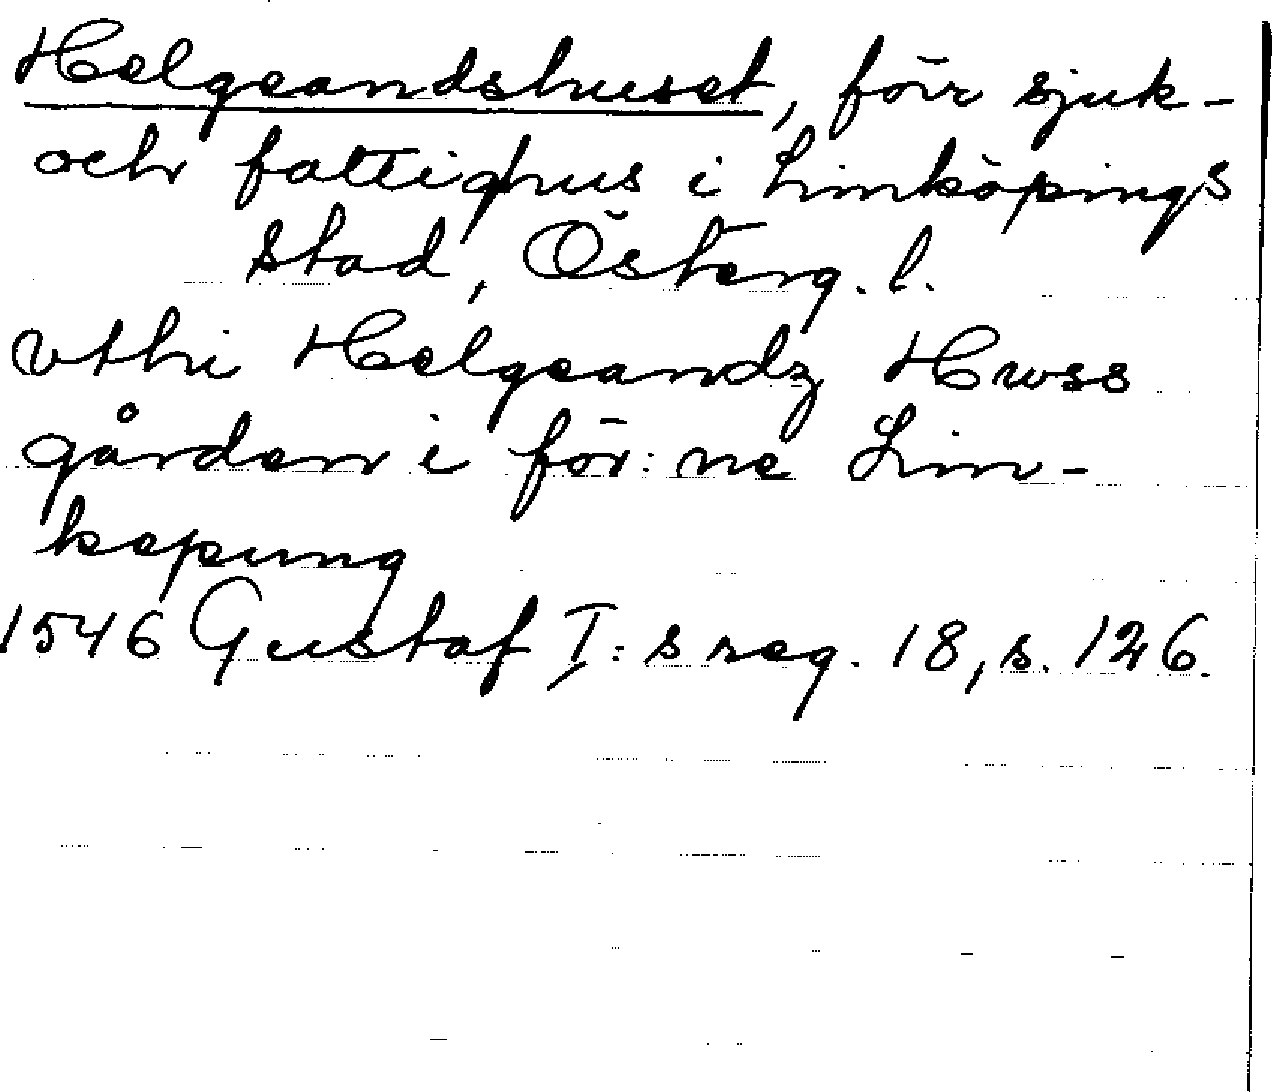 Helgeandshuset, förr sjuk-
och fattighus i Linköpings
stad, Österg. l.
vthi Helgeandz Hwss
gården i för: ne Lin-
keping
1546 Gustaf I: s reg. 18, s. 126.